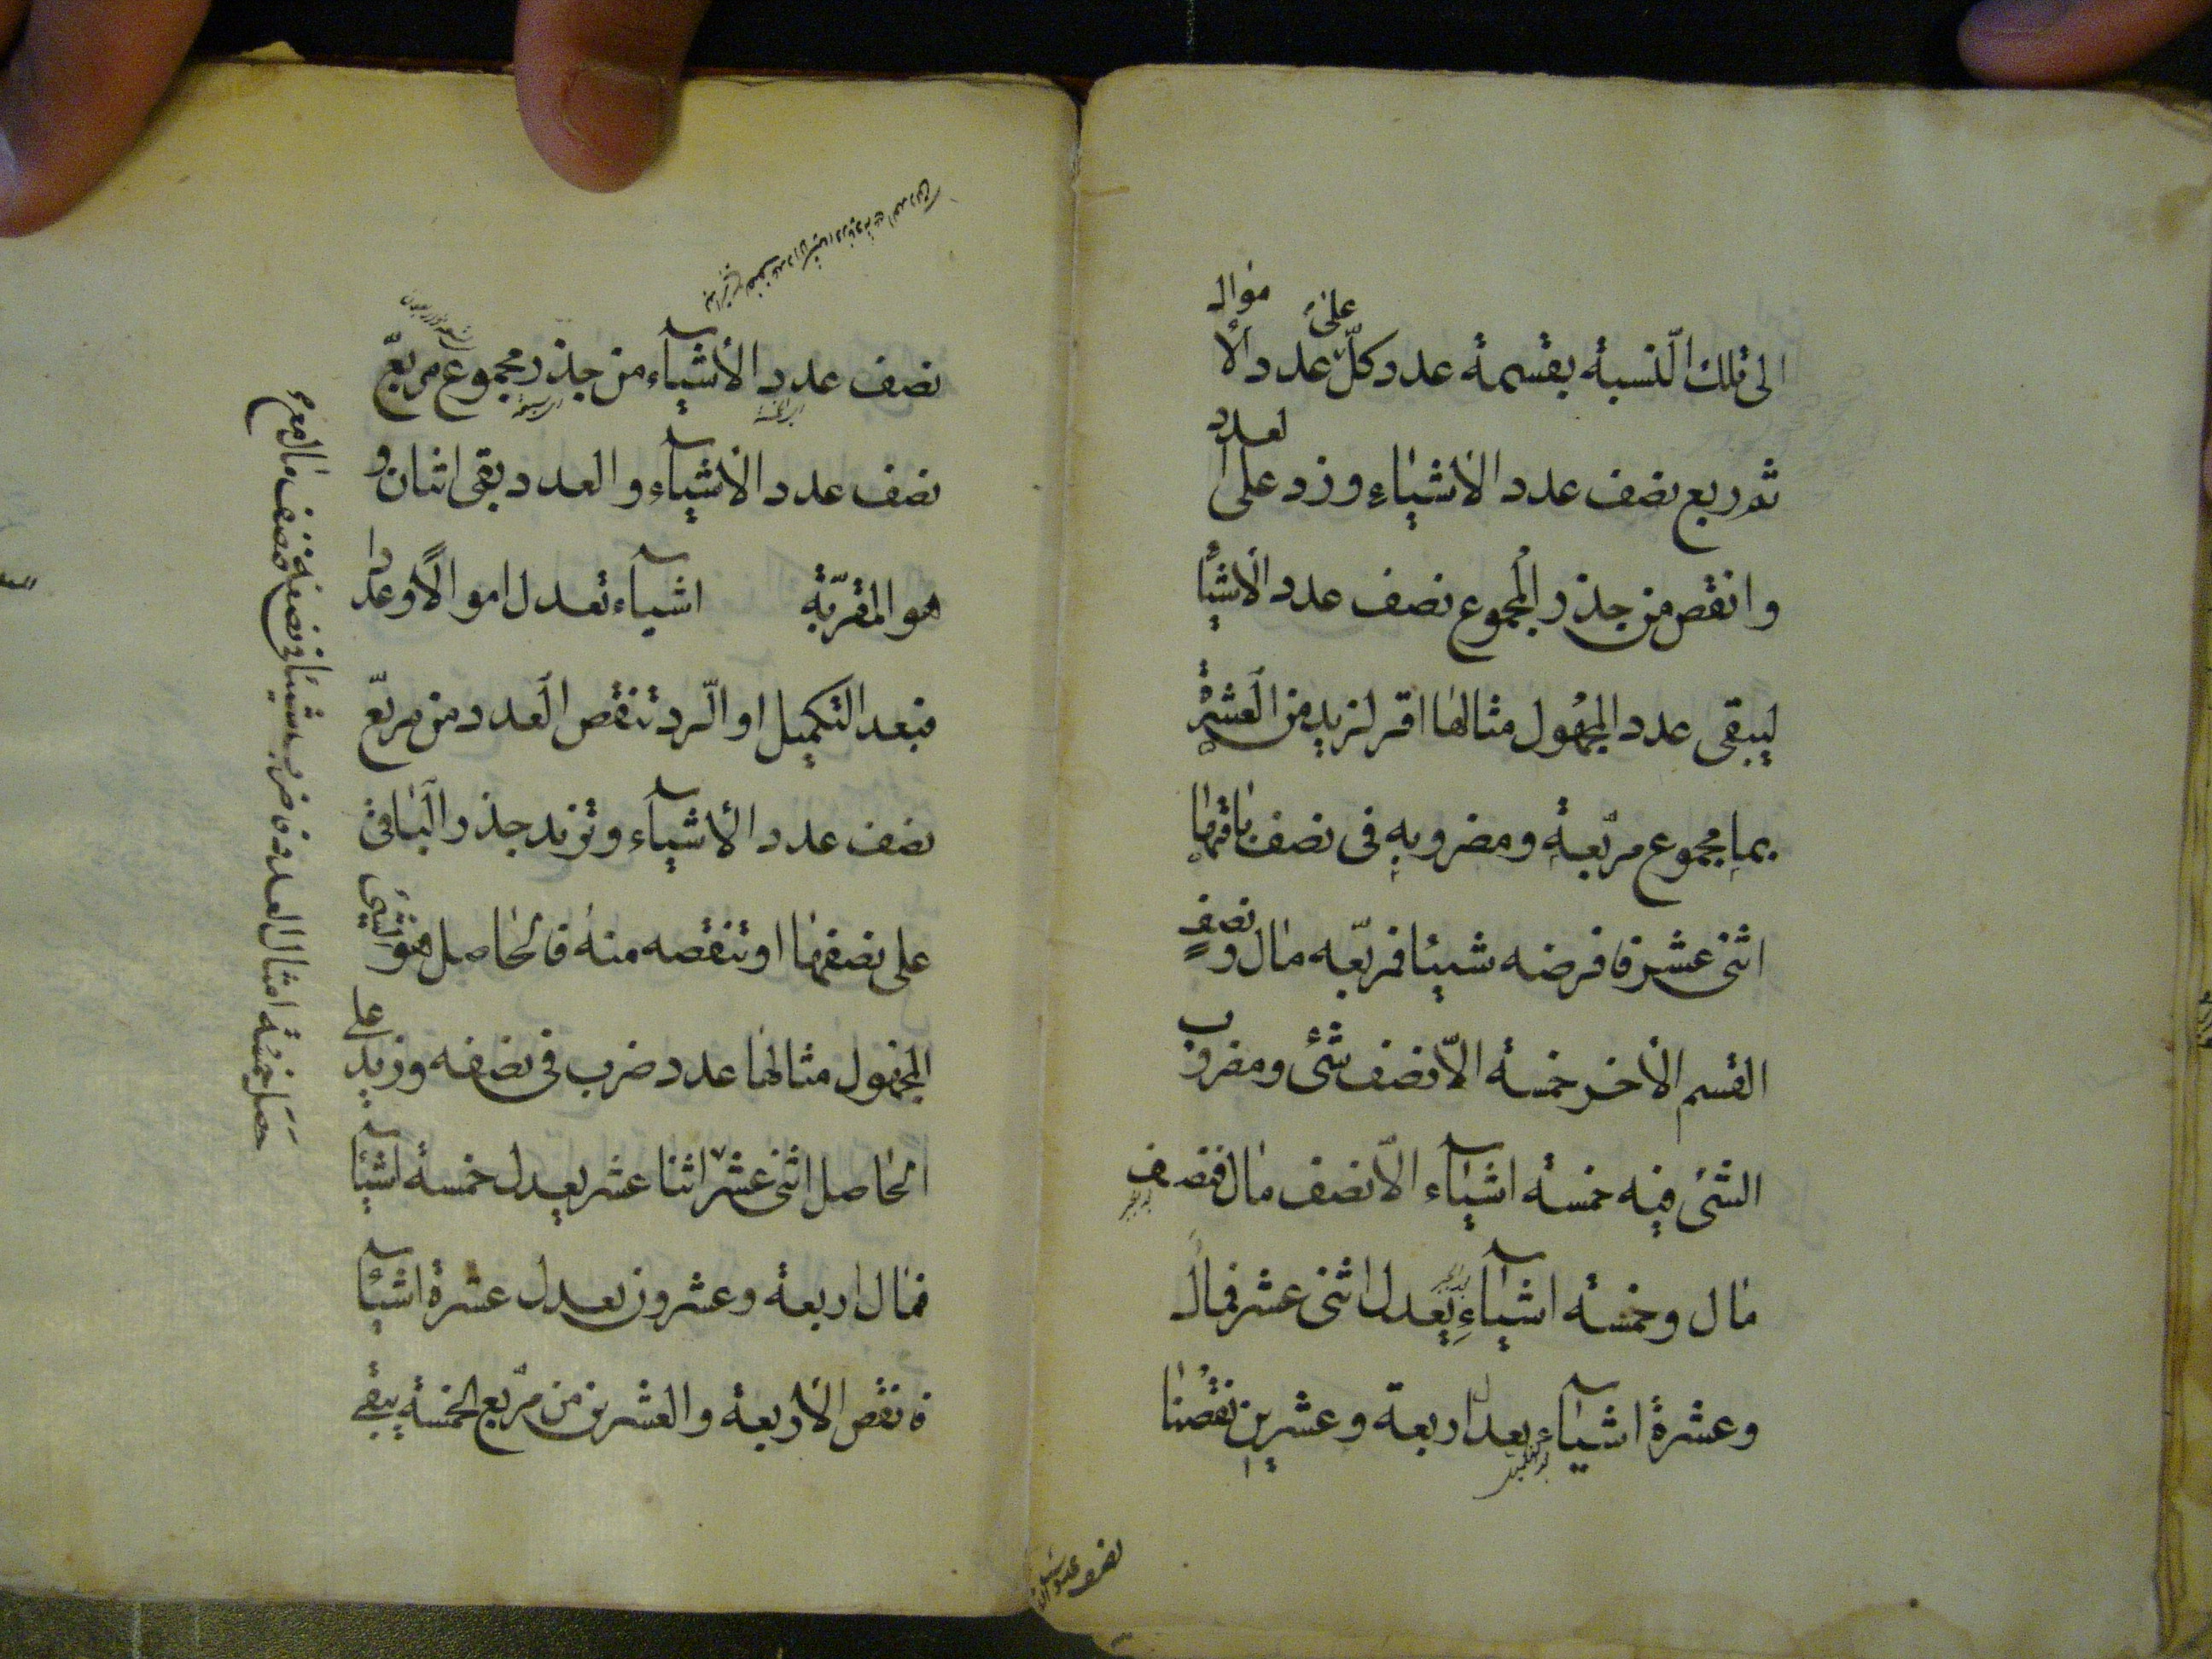 الى تلك النسبة بقسمة عدد كلّ على عدد الأموال
ثم ربع نصف عدد الأشياء وزد على العدد
وانقص من جذر المجموع نصف عدد الاشيا
ليبقى عدد المجهول مثالها اقر لزيد من العشرة
بما مجموع مربعه ومضروبه فى نصف باقيها
اثنى عشر فافرضه شيئا فمربّعه مال ونصف
القسم الاخر خمسة الّا نصف شئ ومضروب
الشئ فيه خمسة اشيآء الّا نصف مال فنصف
مال وخمسة اشيآء يعدل اثنى عشر فمال
وعشرة اشيآء يعدل اربعة وعشرين نقصنا
نصف عدد الأشيآء من جذر مجموع مربّع
نصف عدد الأشيآء والعدد بقى اثنان و
هو المقربّه اشيآء تعدل اموالًا وعددا
فبعد التكميل او الرّد تنقص العدد من مربّع
نصف عدد الأشيآء وتزيد جذر الباقى
على نصفها او تنقصه منه فالحاصل هو الشئ
المجهول مثالها عدد ضرب فى نصفه وزيد على
الحاصل اثنى عشر اثنا عشر يعدل خمسة اشيآ
فمال اربعة وعشرون تعدل عشرة اشيآ
فانقص الأربعة والعشرين من مربّع الخمسة يبقى
حصل خمسة امثال العدد ضرب شيئا فى نصفه نصف مال مع